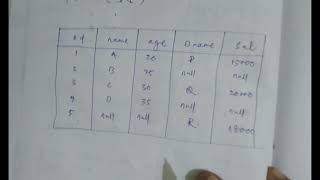 id name age D name Sal
1 A 20 P 15000
2 B 25 null null
3 C 30 Q 20000
4 D 35 null null
5 null null R 18000